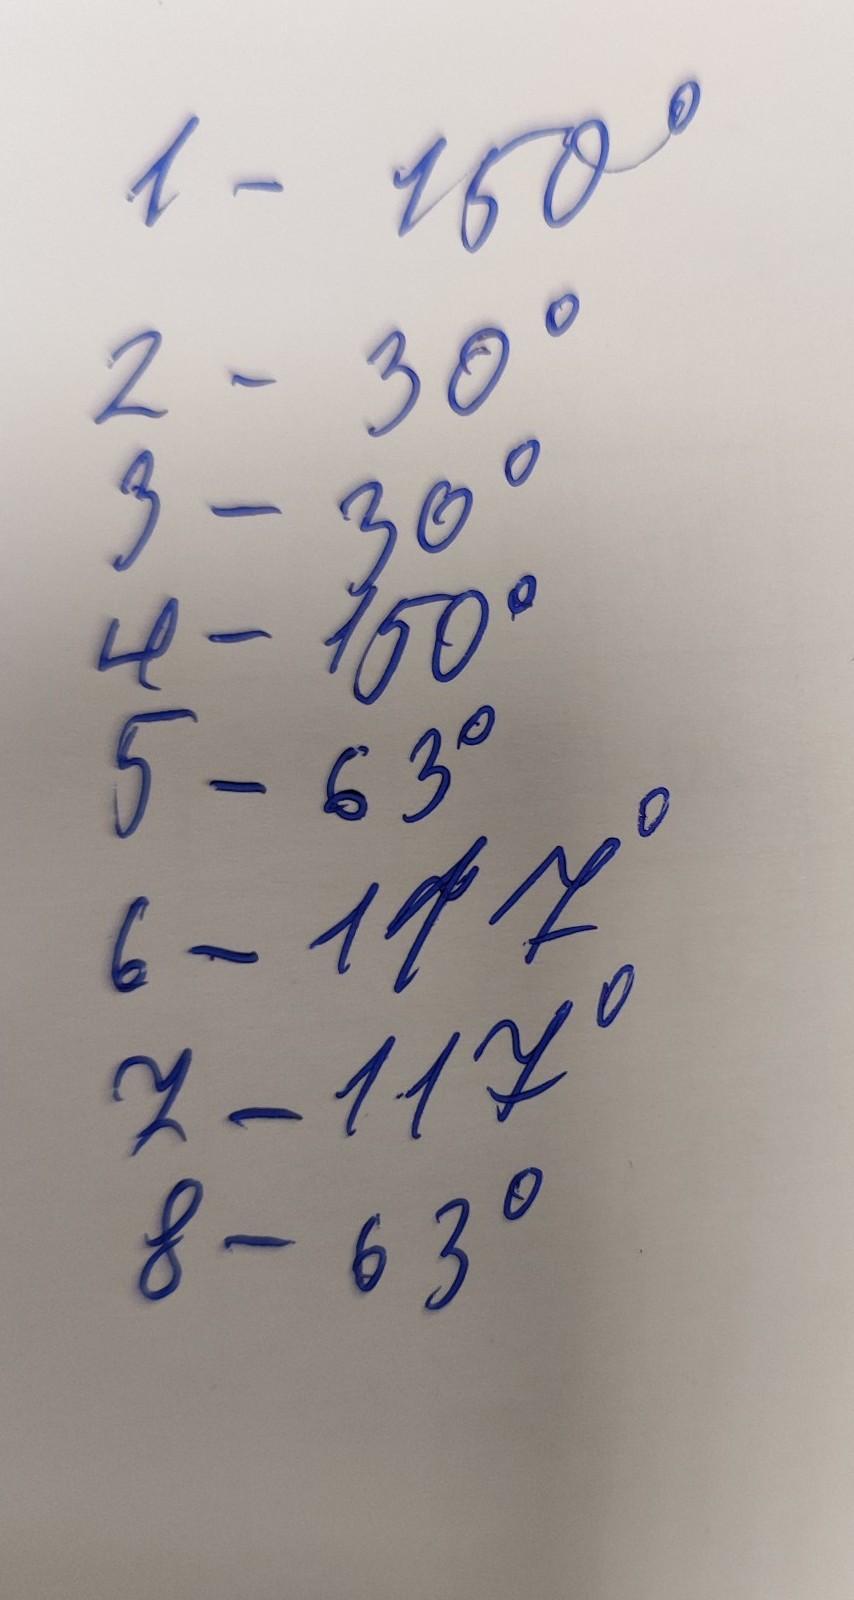 1 - 150°
2 - 30°
3 - 30°
4 - 150°
5 - 63°
6 - 117°
7 - 117°
8 - 63°